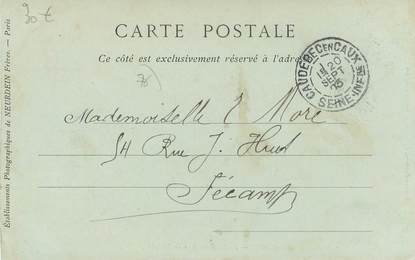 30 €
CARTE POSTALE
Ce côté est exclusivement réservé à l'adresse
76
Mademoiselle E More
54 Rue J. Huet
Fécamp
CAUDEBEC EN CAUX
20
SEPT
SEINE-INFRE
Etablissements Photographiques de NEURDEIN Frères. — Paris